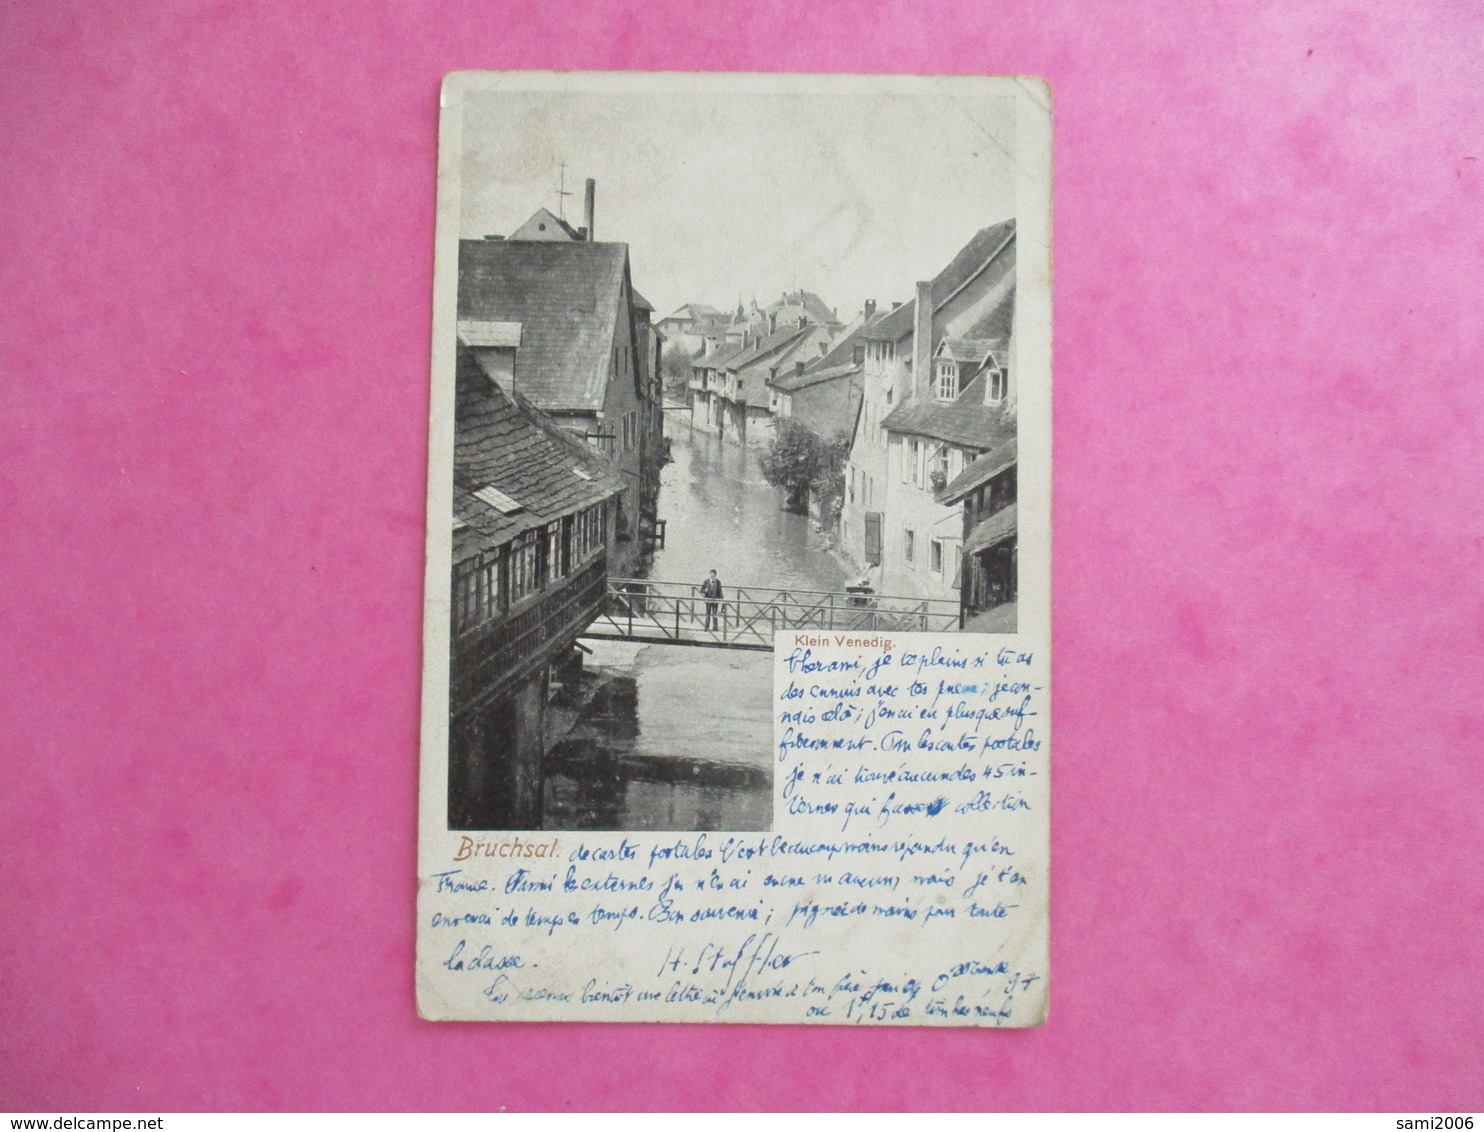 Klein Venedig.
Cher ami, je te plains si tu as
des ennuis avec tes pneus; je con-
nais cela; j'en ai eu plus que suf-
fisamment. Pour les cartes postales
je n'ai trouvé aucun des 45 in-
ternes qui fasse collection
Bruchsal. de cartes postales C'est beaucoup moins répandu qu'en
France. Parmi les externes j'en n'en ai encore vu aucun, mais je t'en
enverrai de temps en temps. Bon souvenir; poignée de mains pour toute
la classe. H. Stoffler
Tu recevras bientôt une lettre où j'envoie à ton père 0 97
ou 1f,15 de timbres neufs
sami2006